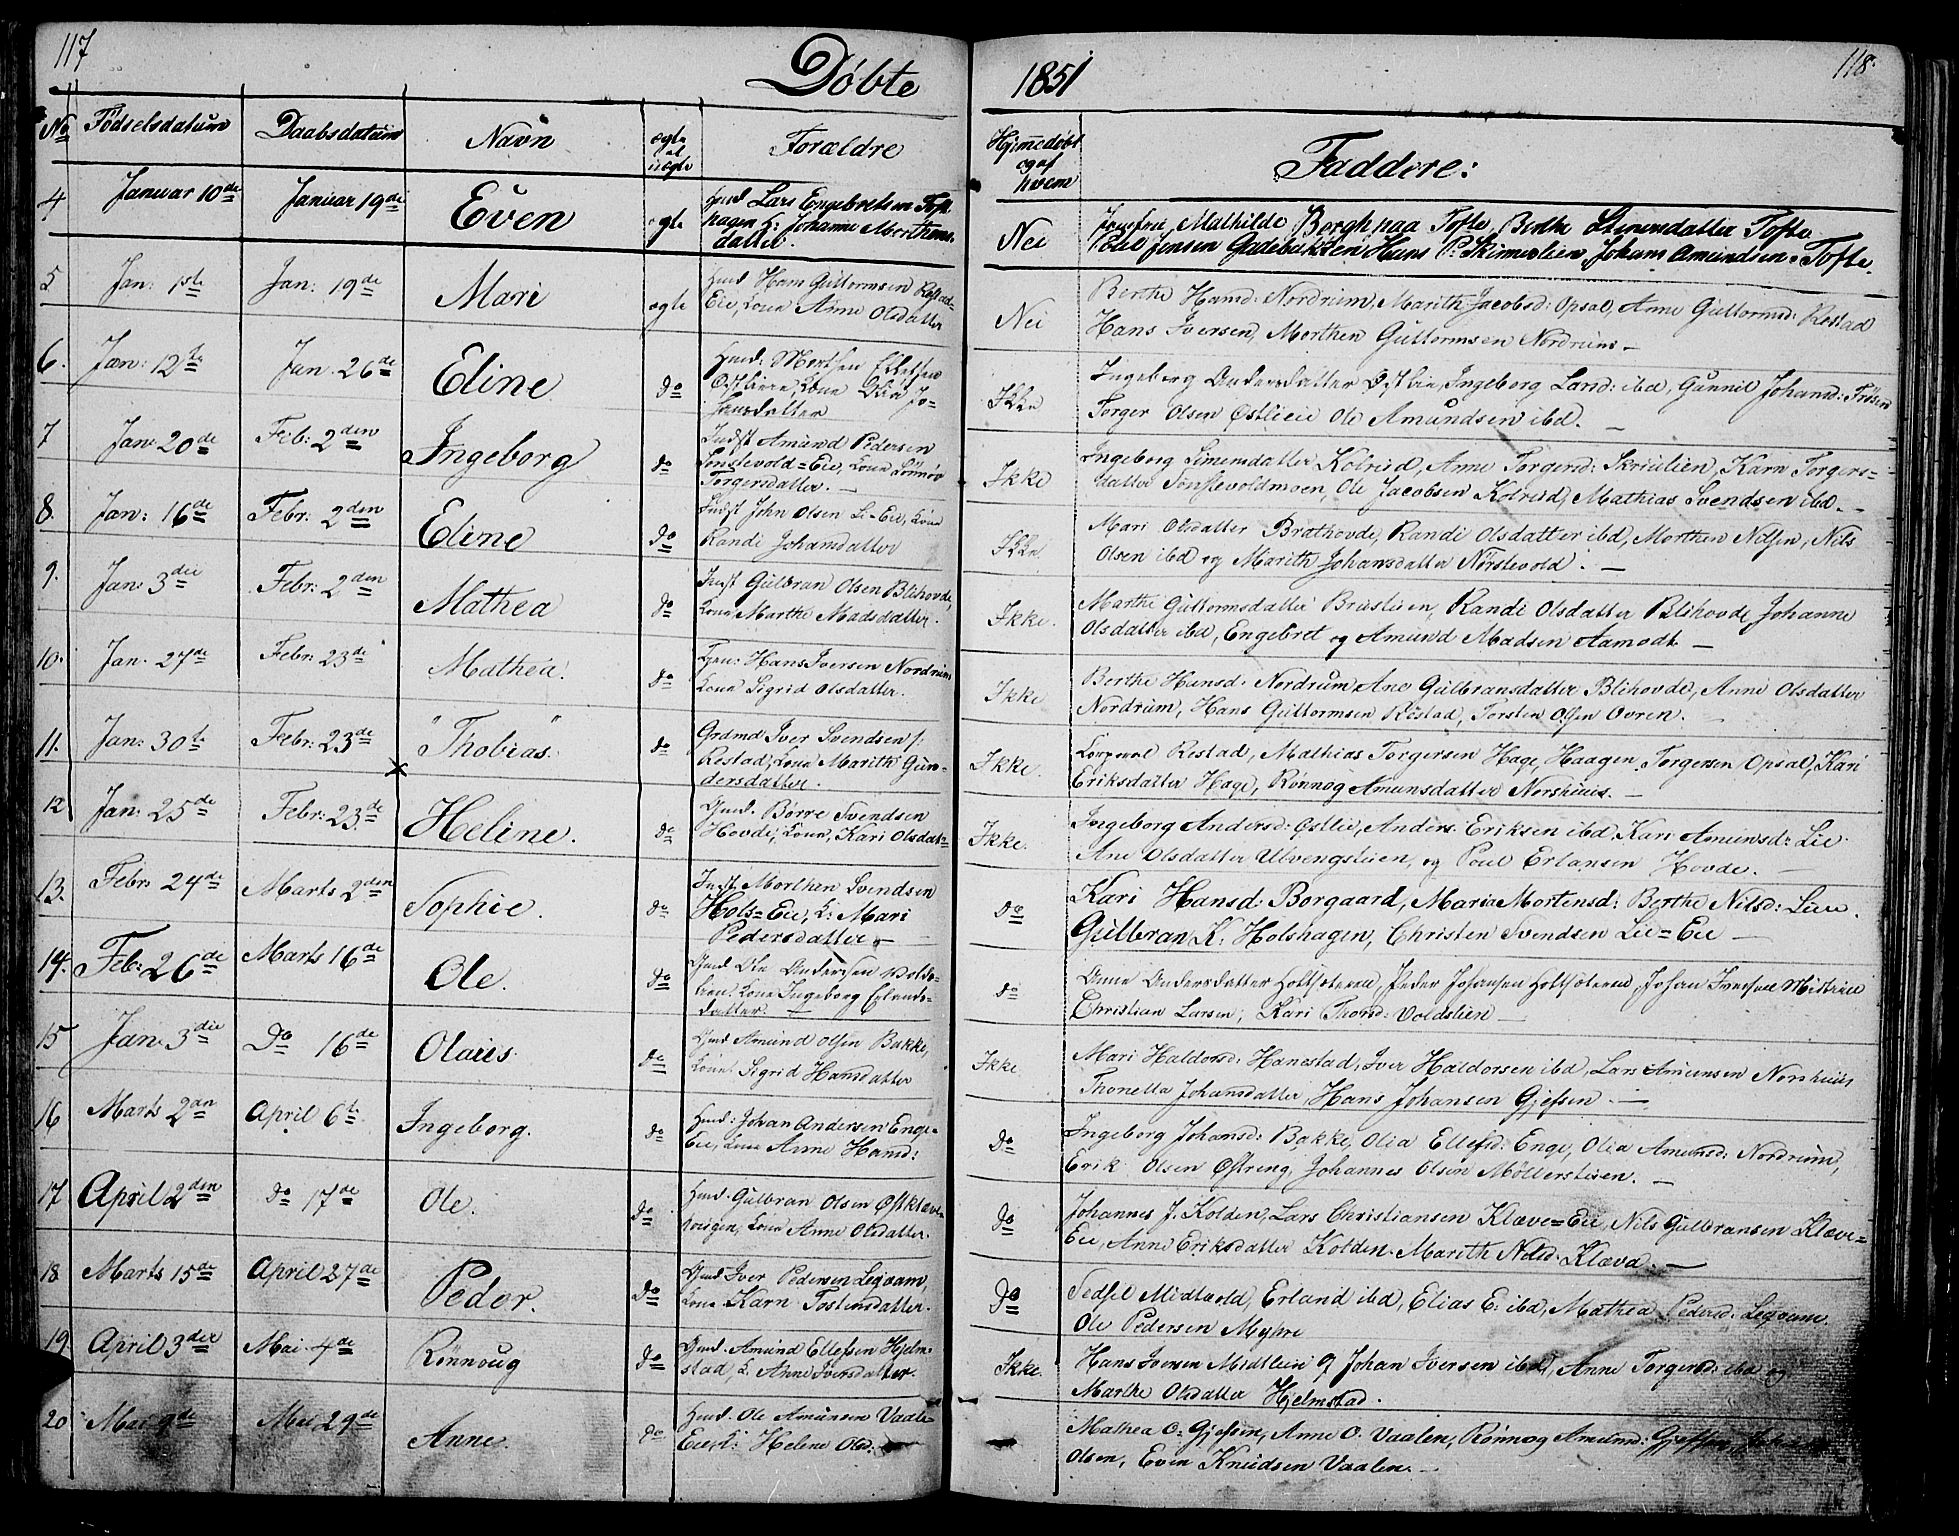 117
Døbte
No Fødselsdatum Daabsdatum Navn ægte el uægte Forældre
4 Januar 10de Januar 19de Even ægte Huusd Lars Engebretsen Toft-
hagen K: Johanne Morthens-
datter.
5 Jan: 1ste Jan: 19de Mari ægte Huusd Hans Guttormsen Restad-
Eie, Kone Anne Olsdatter
6. Jan: 12te Jan. 26de Eline do Huusd: Morthen
Kone Jo-
hansdatter
7 Jan: 20de Feb: 2den Ingeborg do Indst Amund Pedersen
Sønstevold=Eie, Kone Rønnøv
Torgersdatter. —
8. Jan: 16de Febr: 2den Eline do Indst John Olsen Li-Eie, Kone
Randi Johansdatter
9. Jan: 3die Febr: 2den Mathea do Indst Gulbran Olsen Blihovde,
Kone Marthe Madsdatter.
10. Jan. 27de Febr: 23de Mathea do Hans Iversen Nordrum
Kone Sigrid Olsdatter.
11. Jan: 30te Febr: 23de "Thobias." do Grdmd Iver Svendsen
Restad, Kone Marith Gun-
dersdatter.
12 Jan: 25de Febr: 23de Heline. do Gmd. Børre Svendsen
Hovde, Kone, Kari Olsdat-
13. Febr: 24de Marts 2den Sophie. do Indst Morthen Svendsen
Hols=Eie, K: Mari
Pedersdatter —
14. Feb: 26de Marts 16de Ole. do Gmd Ole Andersen Volds-
lien. Kone Ingeborg Erlands-
datter. —
15 Jan: 3die Do 16de Olaus. do Gmd Amund Olsen Bakke,
Kone Sigrid Hansdatter
16 Marts 2den April 6te Ingeborg. do Huusd: Johan Andersen Enge-
Eie, Kone Anne Hansd:
17 April 2den do 17de Ole. do Huusd. Gulbran Olsen
Kone Anne Olsdatter.
18 Marts 15de April 27de Peder. do Gmd Iver Pedersen Legvam,
Kone Karn Tostensdatter.
19 April 3die Mai 4de Rønnoug do Gmd. Amund Ellefsen Hjelm-
stad, K. Anne Iversdatter.
20 Mai 9de Mai 29de Anne. do Huusd. Ole Amunsen Vaale-
Eie K: Helene Olsd:
1851
118.
Hjemmedøbt og af hvem Faddere:
Nei Jomfru Mathilde Borgh paa Tofte, Berthe Simensdatter Tofte
Hans P. Skimeslien Johans Amundsen Tofte.
Nei Berthe Hansd: Nordrum, Marith Jacobsd: Opsal, Anne Guttormsd: Restad
Hans Iversen, Morthen Guttormsen Nordrum —
Ikke Ingeborg Andersdatter Østlie, Ingeborg Land: ibd, Gunnil Johansd: Frøsen
Torger Olsen Østlieie Ole Amundsen ibd. —
Ikke Ingeborg Simensdatter Kolrud, Anne Torgersd: Skriulien, Karn Torgers-
datter Sønstevoldmoen, Ole Jacobsen Kolrud, Mathias Svendsen ibd. -
Ikke Mari Olsdatter Brathovde, Randi Olsdatter ibd, Morthen Nilsen, Nils
Olsen ibd og Marith Johansdatter Nørstevold. —
Ikke. Marthe Guttormsdatter Brustuen, Randi Olsdatter Blihovde Johanne
Olsdatter ibd, Engebret og Amund Madsen Aamodt —
Ikke Berthe Hansd. Nordrum, Ane Gulbransdatter Blihovde, Anne Olsdatter
Nordrum, Hans Guttormsen Restad, Torsten Olsen Ovren.
Ikke. Restad, Mathias Torgersen Hage, Haagen Torgersen Opsal, Kari
Eriksdatter Hage, Rønnog Amunsdatter Norshuus. —
Ikke. Ingeborg Andersd: Østlie, Anders Eriksen ibd, Kari Amunsd: Lie
Ane Olsdatter Ulvengslien, og Poul Erlansen Hovde. —
do Kari Hansd: Borgaard, Maria Mortensd: Berthe Nilsd: Liee.
Gulbran K. Holshagen, Christen Svendsen Lie=Eie —
do Anne Andersdatter Peder Johansen Johan Iversen
Christian Larsen, Kari Thorsd: Voldslien —
Ikke Mari Haldorsd: Hanestad, Iver Haldorsen ibd, Lars Amunsen Norshuus
Thonetta Johansdatter, Hans Johansen Gjefsen. —
do Ingeborg Johansd: Bakke, Olia Ellefsd: Enge, Olia Amunsd: Nordrum,
Erik Olsen Østreng, Johannes Olsen Møllerstuen. —
do Johannes J. Kolden, Lars Christiansen Klæve=Eie, Nils Gulbransen Klæve=
Eie, Anne Eriksdatter Kolden. Marith Nilsd: Klæva. —
do Sedsel Midtvold, Erland ibd, Elias E. ibd, Mathea Pedersd: Legvam
Ole Pedersen Myhre
Ikke. Hans Iversen Midtlien og Johan Iversen ibd, Anne Torgersd: ibd og
Marthe Olsdatter Hjelmstad.
Mathea O. Gjefsen, Anne O. Vaalen, Rønnog Amund: Gjefsen,
Olsen, Even Knudsen Vaalen. —